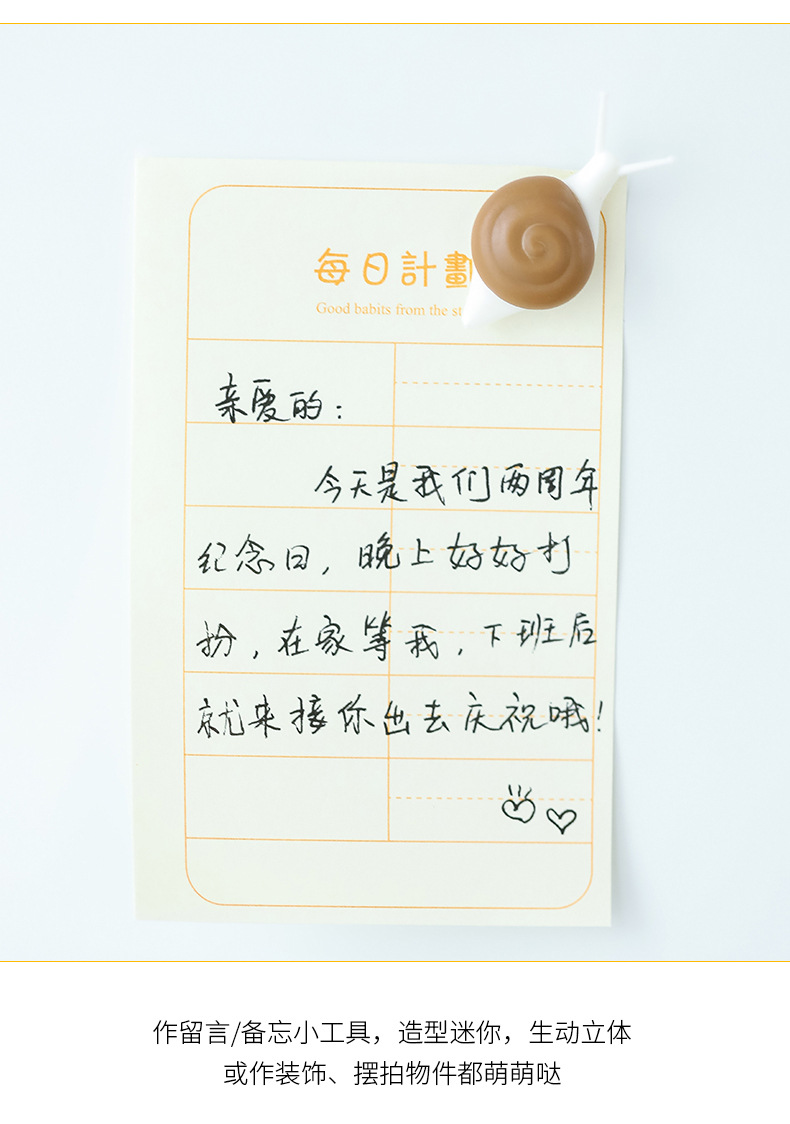 每日計劃
Good babits from the st
亲爱的：
今天是我们两周年
纪念日，晚上好好打
扮，在家等我，下班后
就来接你出去庆祝哦！
作留言/备忘小工具，造型迷你，生动立体
或作装饰、摆拍物件都萌萌哒